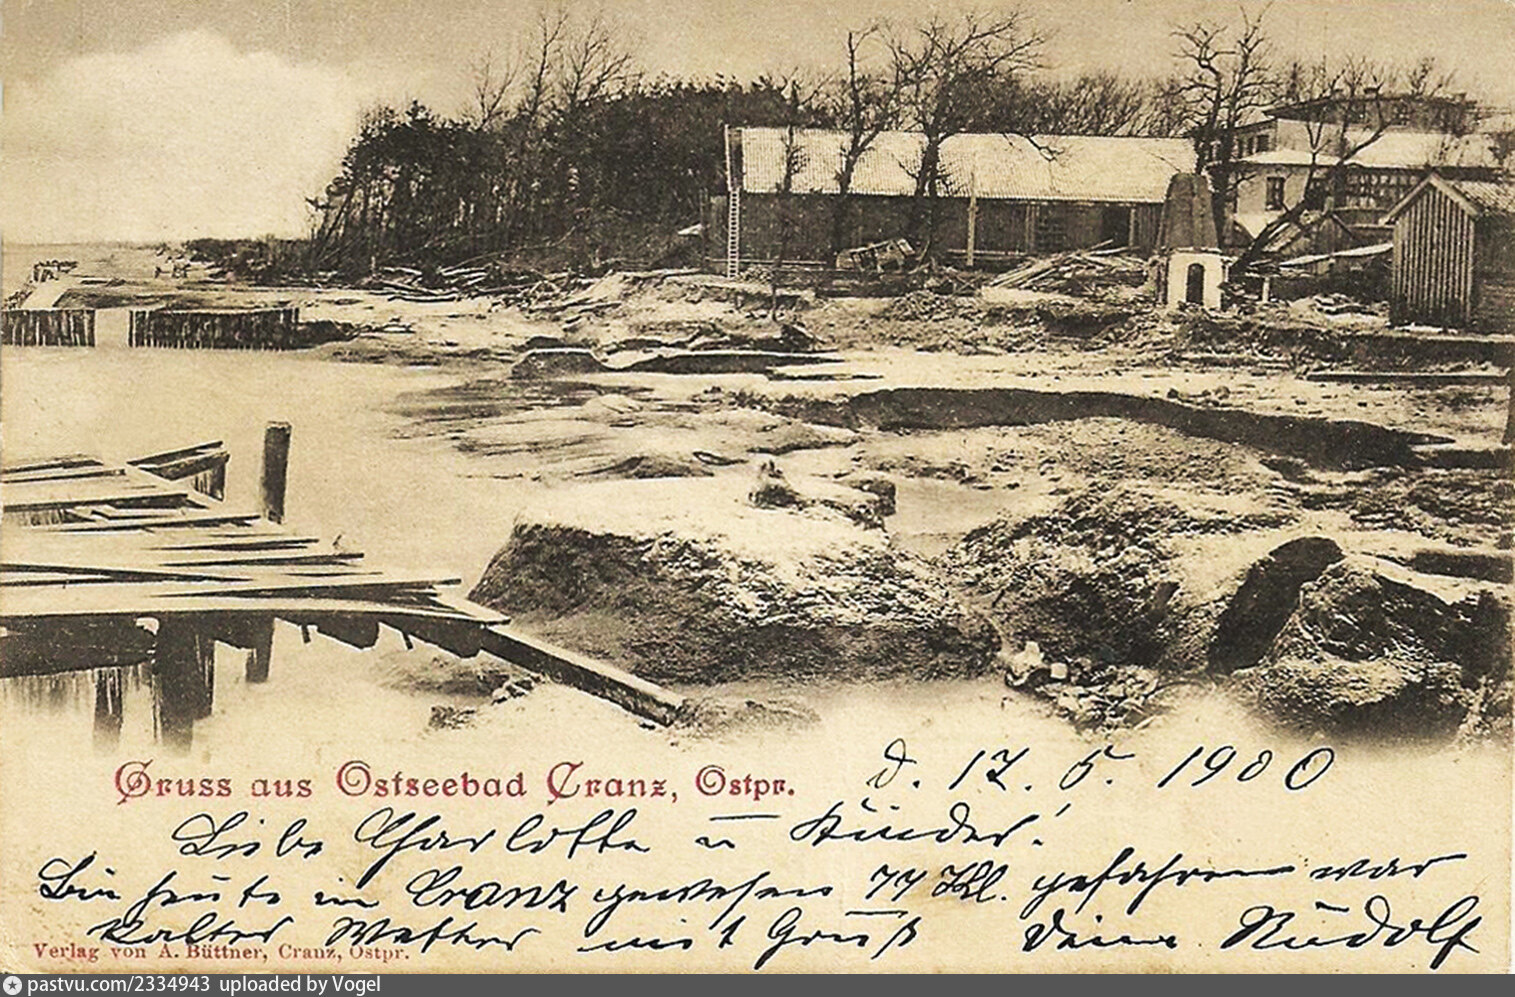 Gruss aus Ostseebad Cranz, Ostpr.
d. 17. 5. 1900
Liebe Charlotte u Kinder!
Bin heute in Cranz gewesen 77 Kl. gefahren war
kaltes Wetter mit Gruß Deine Rudolf
Verlag von A. Büttner, Cranz, Ostpr.
pastvu.com/2334943 uploaded by Vogel